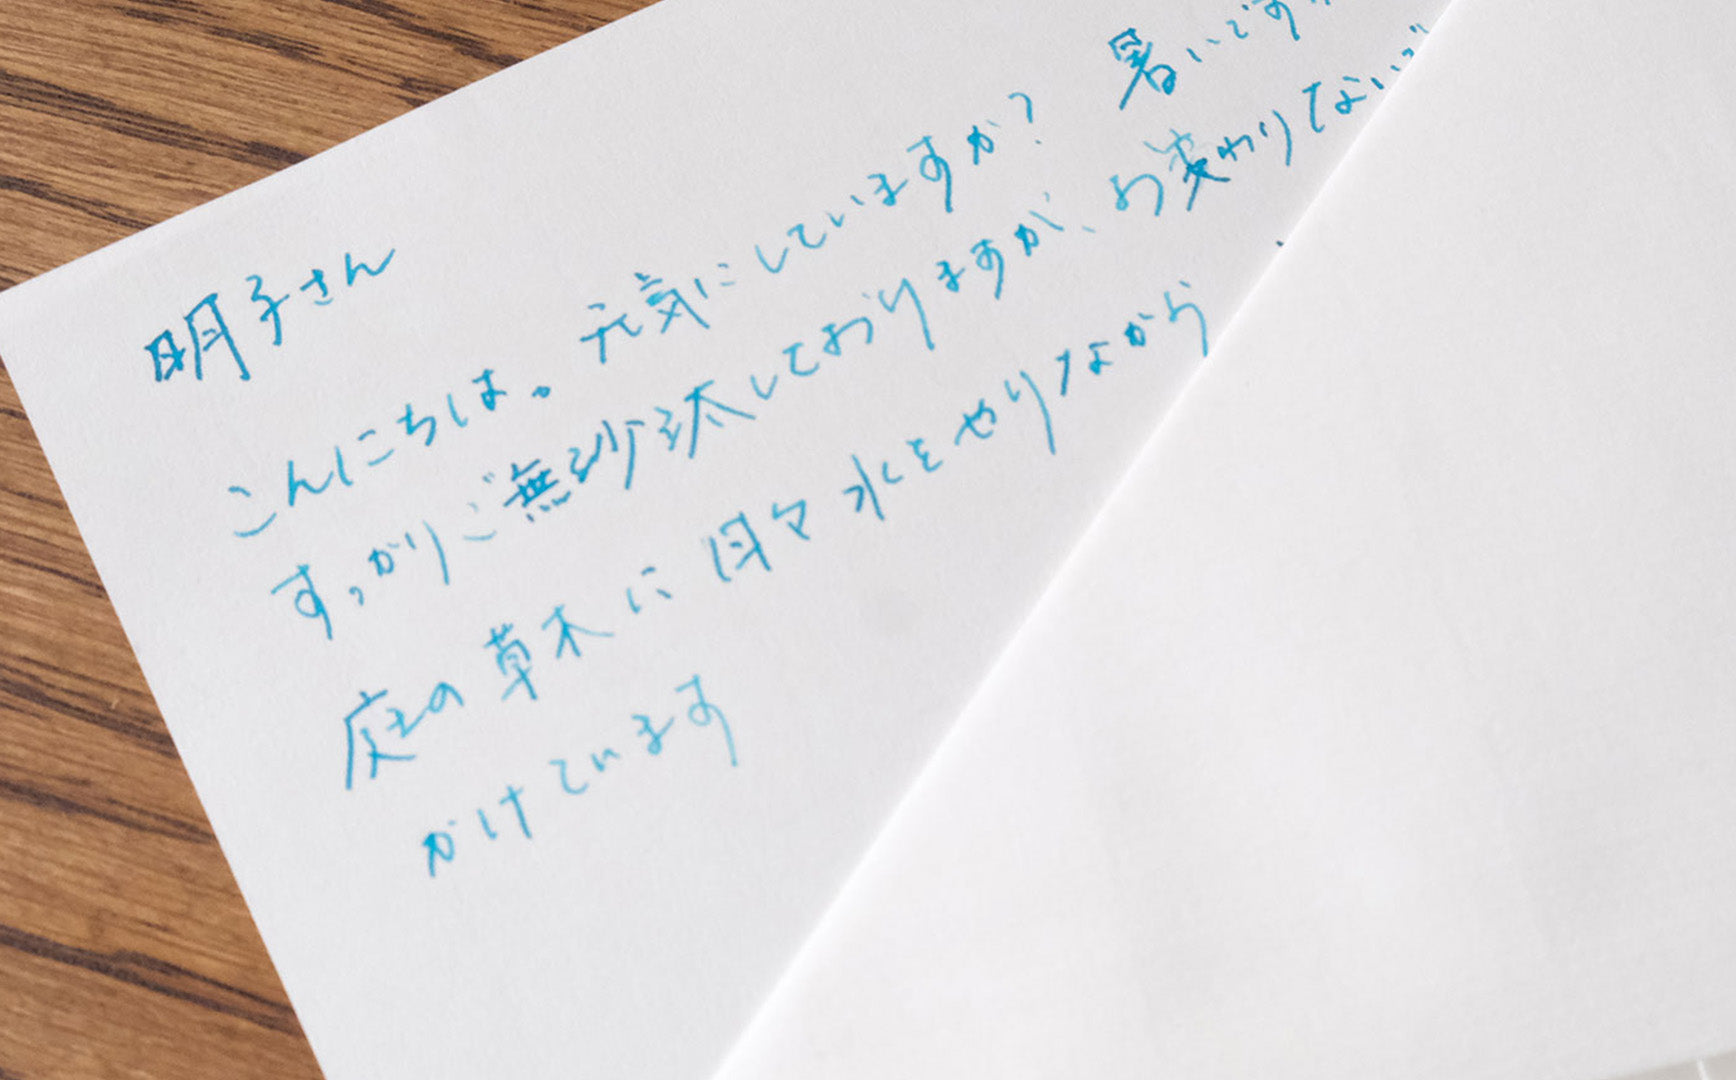 明子さん
こんにちは。元気にしていますか？ 暑いです
すっかりご無沙汰しておりますが、お変わりない
庭の草木に日々水をやりながら
かけています